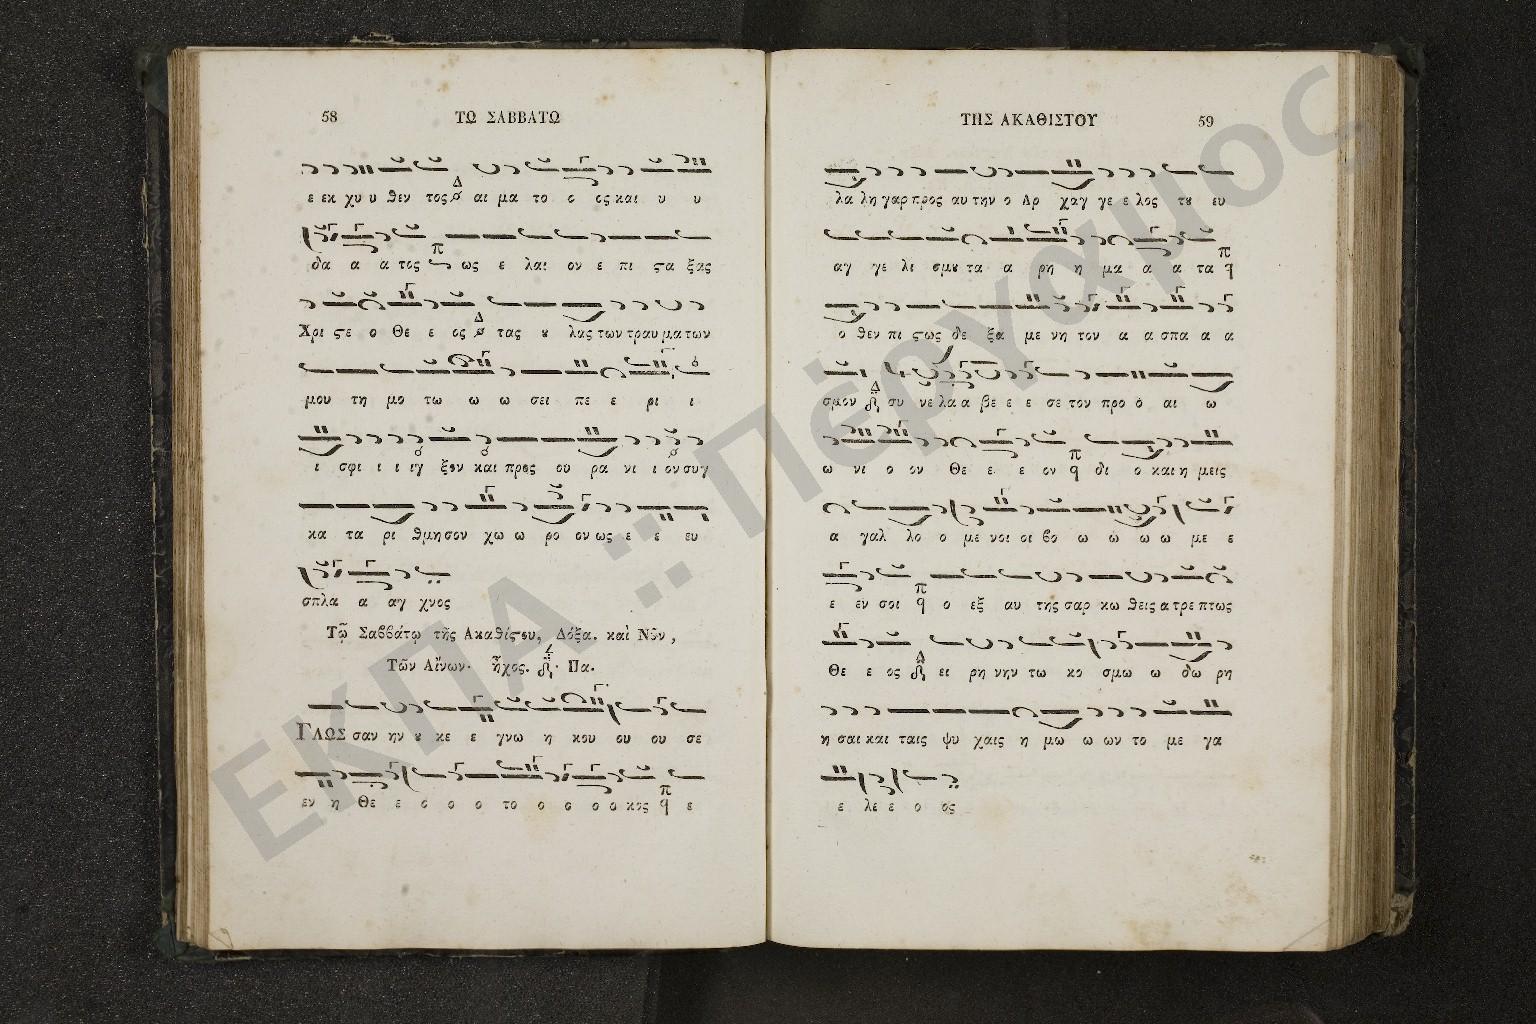 58 ΤΩ ΣΑΒΒΑΤΩ
ε εκ χυ υ θεν τος αι μα το ο ος και υ υ
δα α α τος ως ε λαι ον ε πι ϛα ξας
Χρι ϛε ο Θε ε ος τας ȣ λας των τραυ μα των
μου τη μο τω ω ω σει πε ε ρι ι
ι σφι ι ι ιγ ξον και προς ου ρα νι ι ον συγ
κα τα ρι θμη σον χω ω ρο ον ως ε ε ευ
σπλα α αγ χνος
Τῷ Σαββάτῳ τῆς Ακαθίϛου, Δόξα. καὶ Νῦν,
Τῶν Αἴνων. ἦχος. Πα.
ΓΛΩΣ σαν ην ȣ κε ε γνω η κου ου ου σε
εν η Θε ε ο ο ο το ο ο ο ο κος ε
ΤΗΣ ΑΚΑΘΙΣΤΟΥ 59
λα λη γαρ προς αυ την ο Αρ χαγ γε ε λος τȣ ευ
αγ γε λι σμȣ τα α ρη η μα α α τα
ο θεν πι ϛως δε ξα με νη τον α α σπα α α
σμον συ νε λα α βε ε ε σε τον προ ο αι ω
ω νι ο ον Θε ε ε ον δι ο και η μεις
α γαλ λο ο με νοι οι βο ω ω ω ω με ε
ε εν σοι ο εξ αυ της σαρ κω θεις α τρε πτως
Θε ε ος ει ρη νην τω κο σμω ω δω ρη
η σαι και ταις ψυ χαις η μω ω ων το με γα
ε λε ε ο ος
ΕΚΠΑ :: Πέργαμος